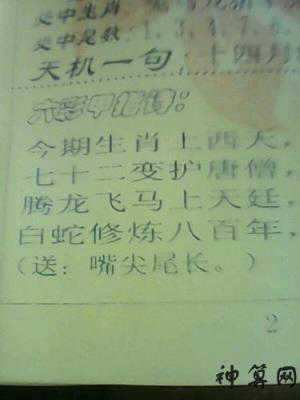 中生肖
中尾数：1、3、4、7、6
天机一句：十四月
六彩
今期生肖上西天，
七十二变护唐僧，
腾龙飞马上天廷，
白蛇修炼八百年，
(送：嘴尖尾长。)
2
神算网